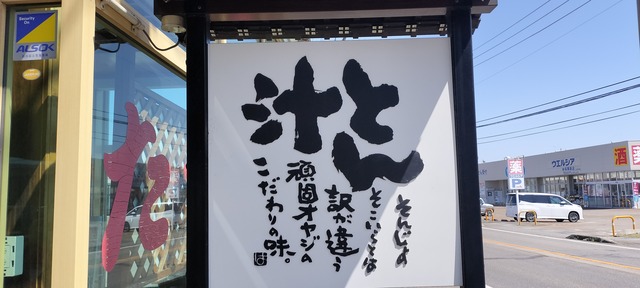 とん汁
そんじょ
そこいらとは
訳が違う
頑固オヤジの
こだわりの味。
Security On
ALSOK
た
ウエルシア
薬
P
酒